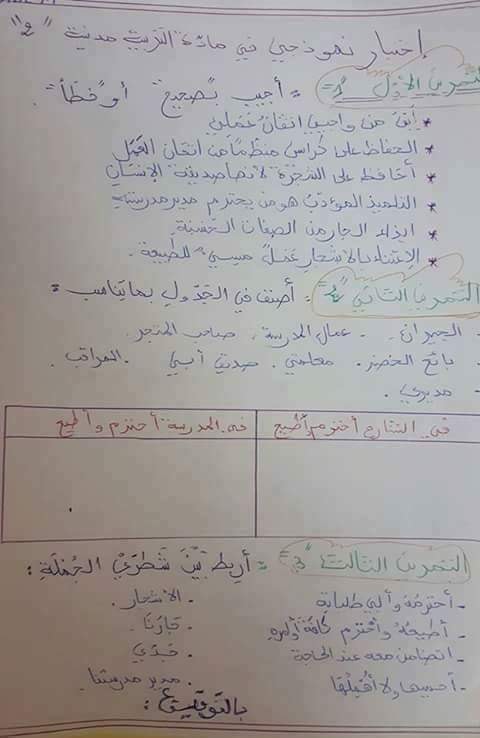 إختبار نموذجي في مادة التربية مدنية "2"
التمرين الأول 1 = أجيب بصحيح أو خطأ.
* إن من واجبي إتقان عملي
* الحفاظ على كراسي منظما من اتقان العمل
* أحافظ على الشجرة لأنها صديقة الإنسان
* التلميذ المؤدب هو من يحترم مدير مدرسته
* ايذاء الجار من الصفات الحسنة.
* الإعتناء بالأشجار عمل مسيء للطبيعة.
التمرين الثاني 2 = أصنف في الجدول بما يناسب =
- الجيران. - عمال المدرسة. صاحب المتجر.
بائع الخضر. معلمتي. صديق أبي. المراقب.
- مديري.
في الشارع أحترم وأطيع
في المدرسة أحترم وأطيع
التمرين الثالث 3 = أربط بين شطري الجملة:
- أحترمه وألبي طلباته . الأشجار.
- أطيعه وأحترم كافة أوامره . جارنا.
- اتضامن معه عند الحاجة . جدي
- أحميها ولا أقطعها . مدير مدرستنا
بالتوفيق: